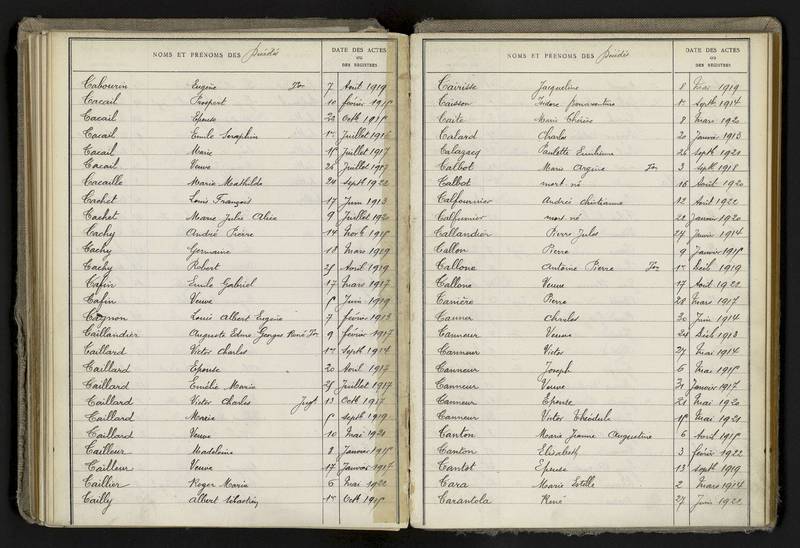 NOMS ET PRÉNOMS DES Décédés
DATE DES ACTES
OU
DES REGISTRES
Cabourin Eugène 7 Août 1919
Cacail Prospert 10 février 1918
Cacail Epouse 22 Octb 1918
Cacail Emile Séraphin Juillet 1916
Cacail Marie Juillet 1917
Cacail Veuve 26 Juillet 1917
Cacaille Marie Mathilde 24 Septb 1922
Cachet Louis François 17 Juin 1913
Cachet Marie Julie Alice 9 Juillet 1920
Cachy André Pierre 14 Novb 1918
Cachy Germaine 18 Mars 1919
Cachy Robert Avril 1919
Cafin Emile Gabriel 17 Mars 1917
Cafin Veuve Juin 1919
Cagnon Louis Albert Eugène 7 février 1913
Caillandier Auguste Edme Georges René 9 février 1917
Caillard Victor Charles Septb 1914
Caillard Epouse 20 Avril 1917
Caillard Emélie Marie Juillet 1917
Caillard Victor Charles Jugt 13 Octb 1917
Caillard Marie Septb 1919
Caillard Veuve 10 Mai 1921
Cailleur Madeleine 8 Janvier 1918
Cailleur Veuve 17 Janvier 1917
Caillier Roger Marie 6 Mai 1922
Cailly Albert Sébastien Octb 1918
NOMS ET PRÉNOMS DES Décédés
DATE DES ACTES
OU
DES REGISTRES
Cairisse Jacqueline 8 Mai 1919
Caisson Isidore Bonaventure Septb 1914
Caite Marie Thérèse 8 Mars 1920
Calard Charles 20 Janvier 1913
Paulette Emilienne 26 Septb 1920
Calbot Marie Argine 3 Septb 1918
Calbot mort né 16 Août 1920
Calfournier André Christianne 12 Août 1922
mort né 22 Janvier 1920
Callandier Pierre Jules 24 Janvier 1914
Callon Pierre 9 Janvier 1918
Callone Antoine Pierre Décb 1919
Callone Veuve 17 Août 1922
Camière Pierre 28 Mars 1917
Canner Charles 30 Juin 1914
Canneur Veuve 24 Décb 1913
Canneur Victor 27 Mai 1914
Canneur Joseph 6 Mai 1918
Canneur Veuve 31 Janvier 1917
Canneur Epouse 21 Mai 1920
Canneur Victor Théodule Mai 1921
Canton Marie Jeanne Augustine 6 Avril 1918
Canton Elisabeth 3 février 1922
Cantot Epouse 13 Septb 1919
Cara Marie Estelle 2 Mars 1914
Carantola René 27 Juin 1922